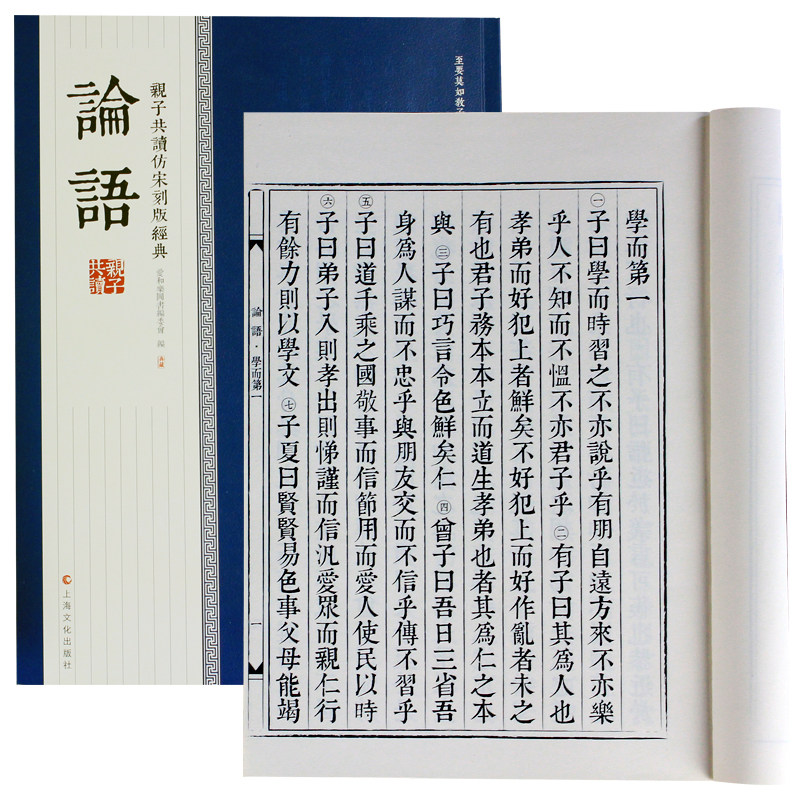 至要莫如教子
親子共讀仿宋刻版經典
論語
親子共讀
愛和樂圖書編委會 編
上海文化出版社
學而第一
㊀子曰學而時習之不亦說乎有朋自遠方來不亦樂
乎人不知而不慍不亦君子乎㊁有子曰其爲人也
孝弟而好犯上者鮮矣不好犯上而好作亂者未之
有也君子務本本立而道生孝弟也者其爲仁之本
與㊂子曰巧言令色鮮矣仁㊃曾子曰吾日三省吾
身爲人謀而不忠乎與朋友交而不信乎傳不習乎
㊄子曰道千乘之國敬事而信節用而愛人使民以時
㊅子曰弟子入則孝出則悌謹而信汎愛眾而親仁行
有餘力則以學文㊆子夏曰賢賢易色事父母能竭
論語·學而第一
一